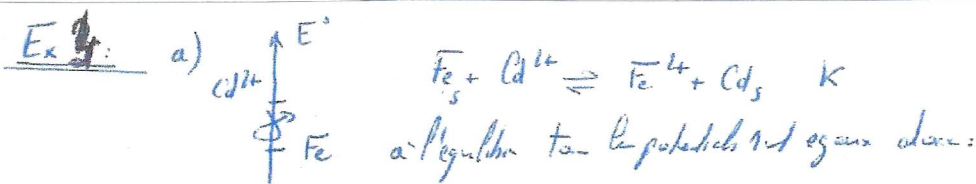 Ex 4: a) E°
Cd²⁺ Fe_s + Cd²⁺ ⇌ Fe²⁺ + Cd_s K
Fe à l'équilibre tous les potentiels sont égaux donc: